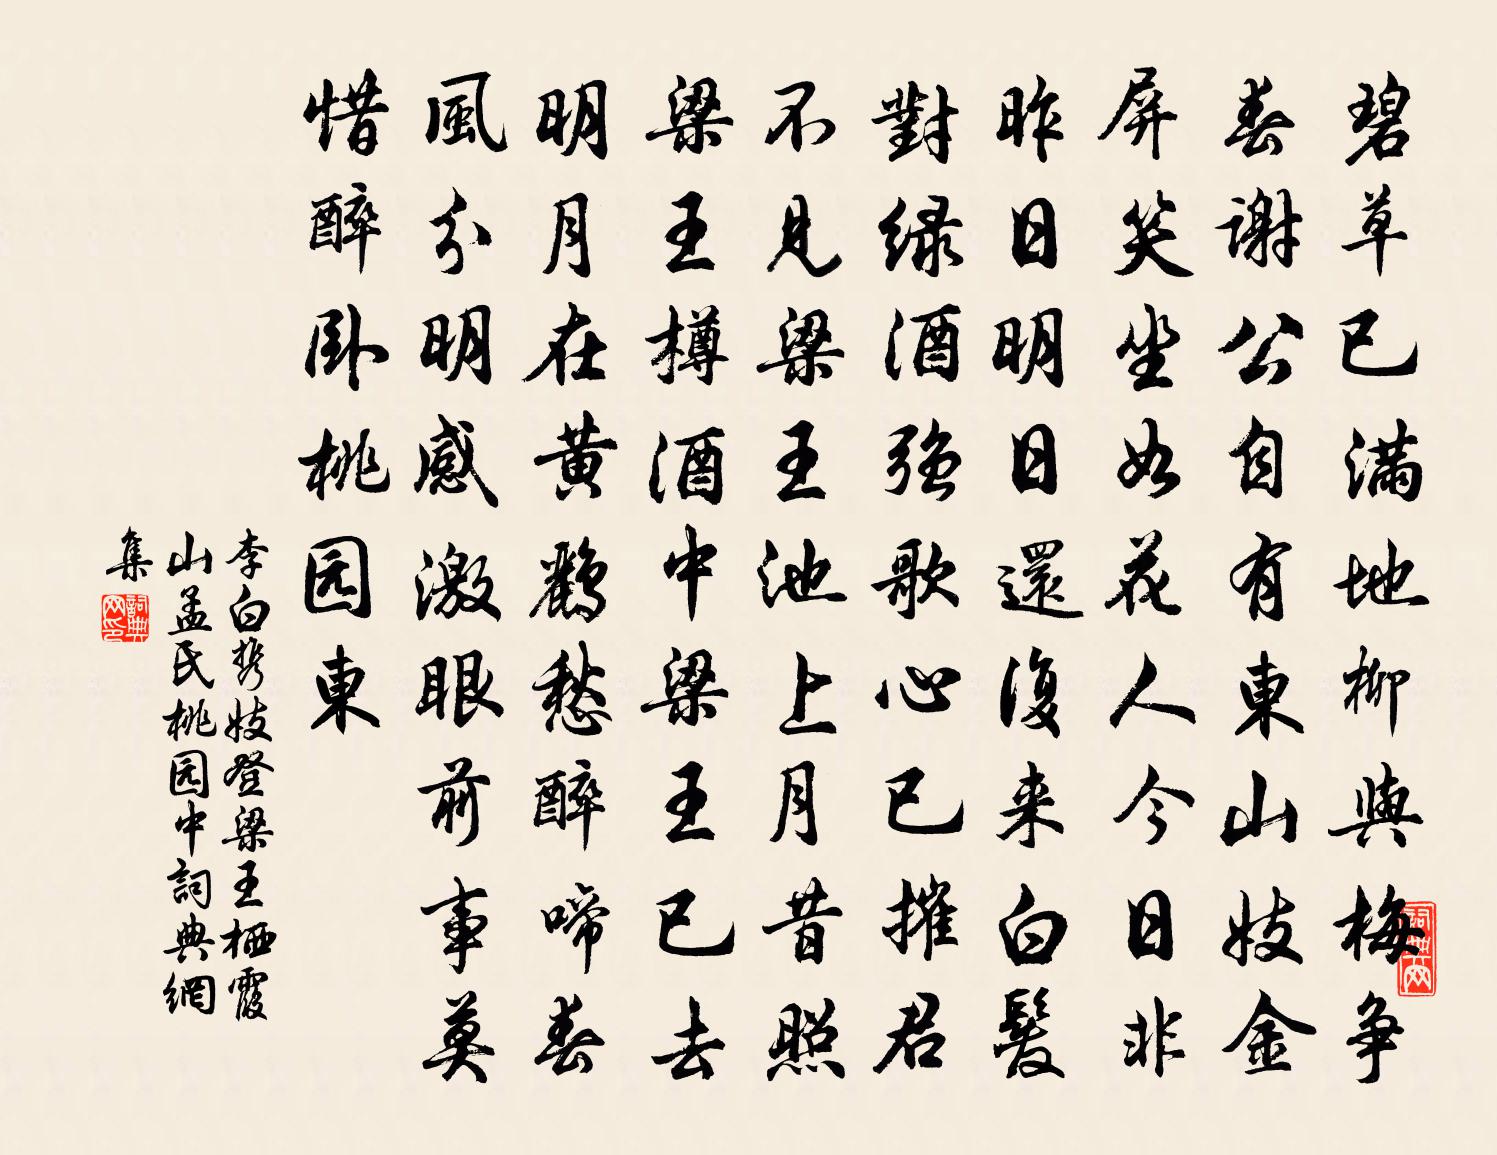 碧草已满地柳與梅争
春謝公自有東山妓金
屏笑坐如花人今日非
昨日明日還復来白髮
對緑酒强歌心已摧君
不見梁王池上月昔照
梁王樽酒中梁王已去
明月在黄鸝愁醉啼春
風分明感激眼前事莫
惜醉卧桃园東
李白携妓登梁王栖霞
山孟氏桃园中詞典網
集
詞典網